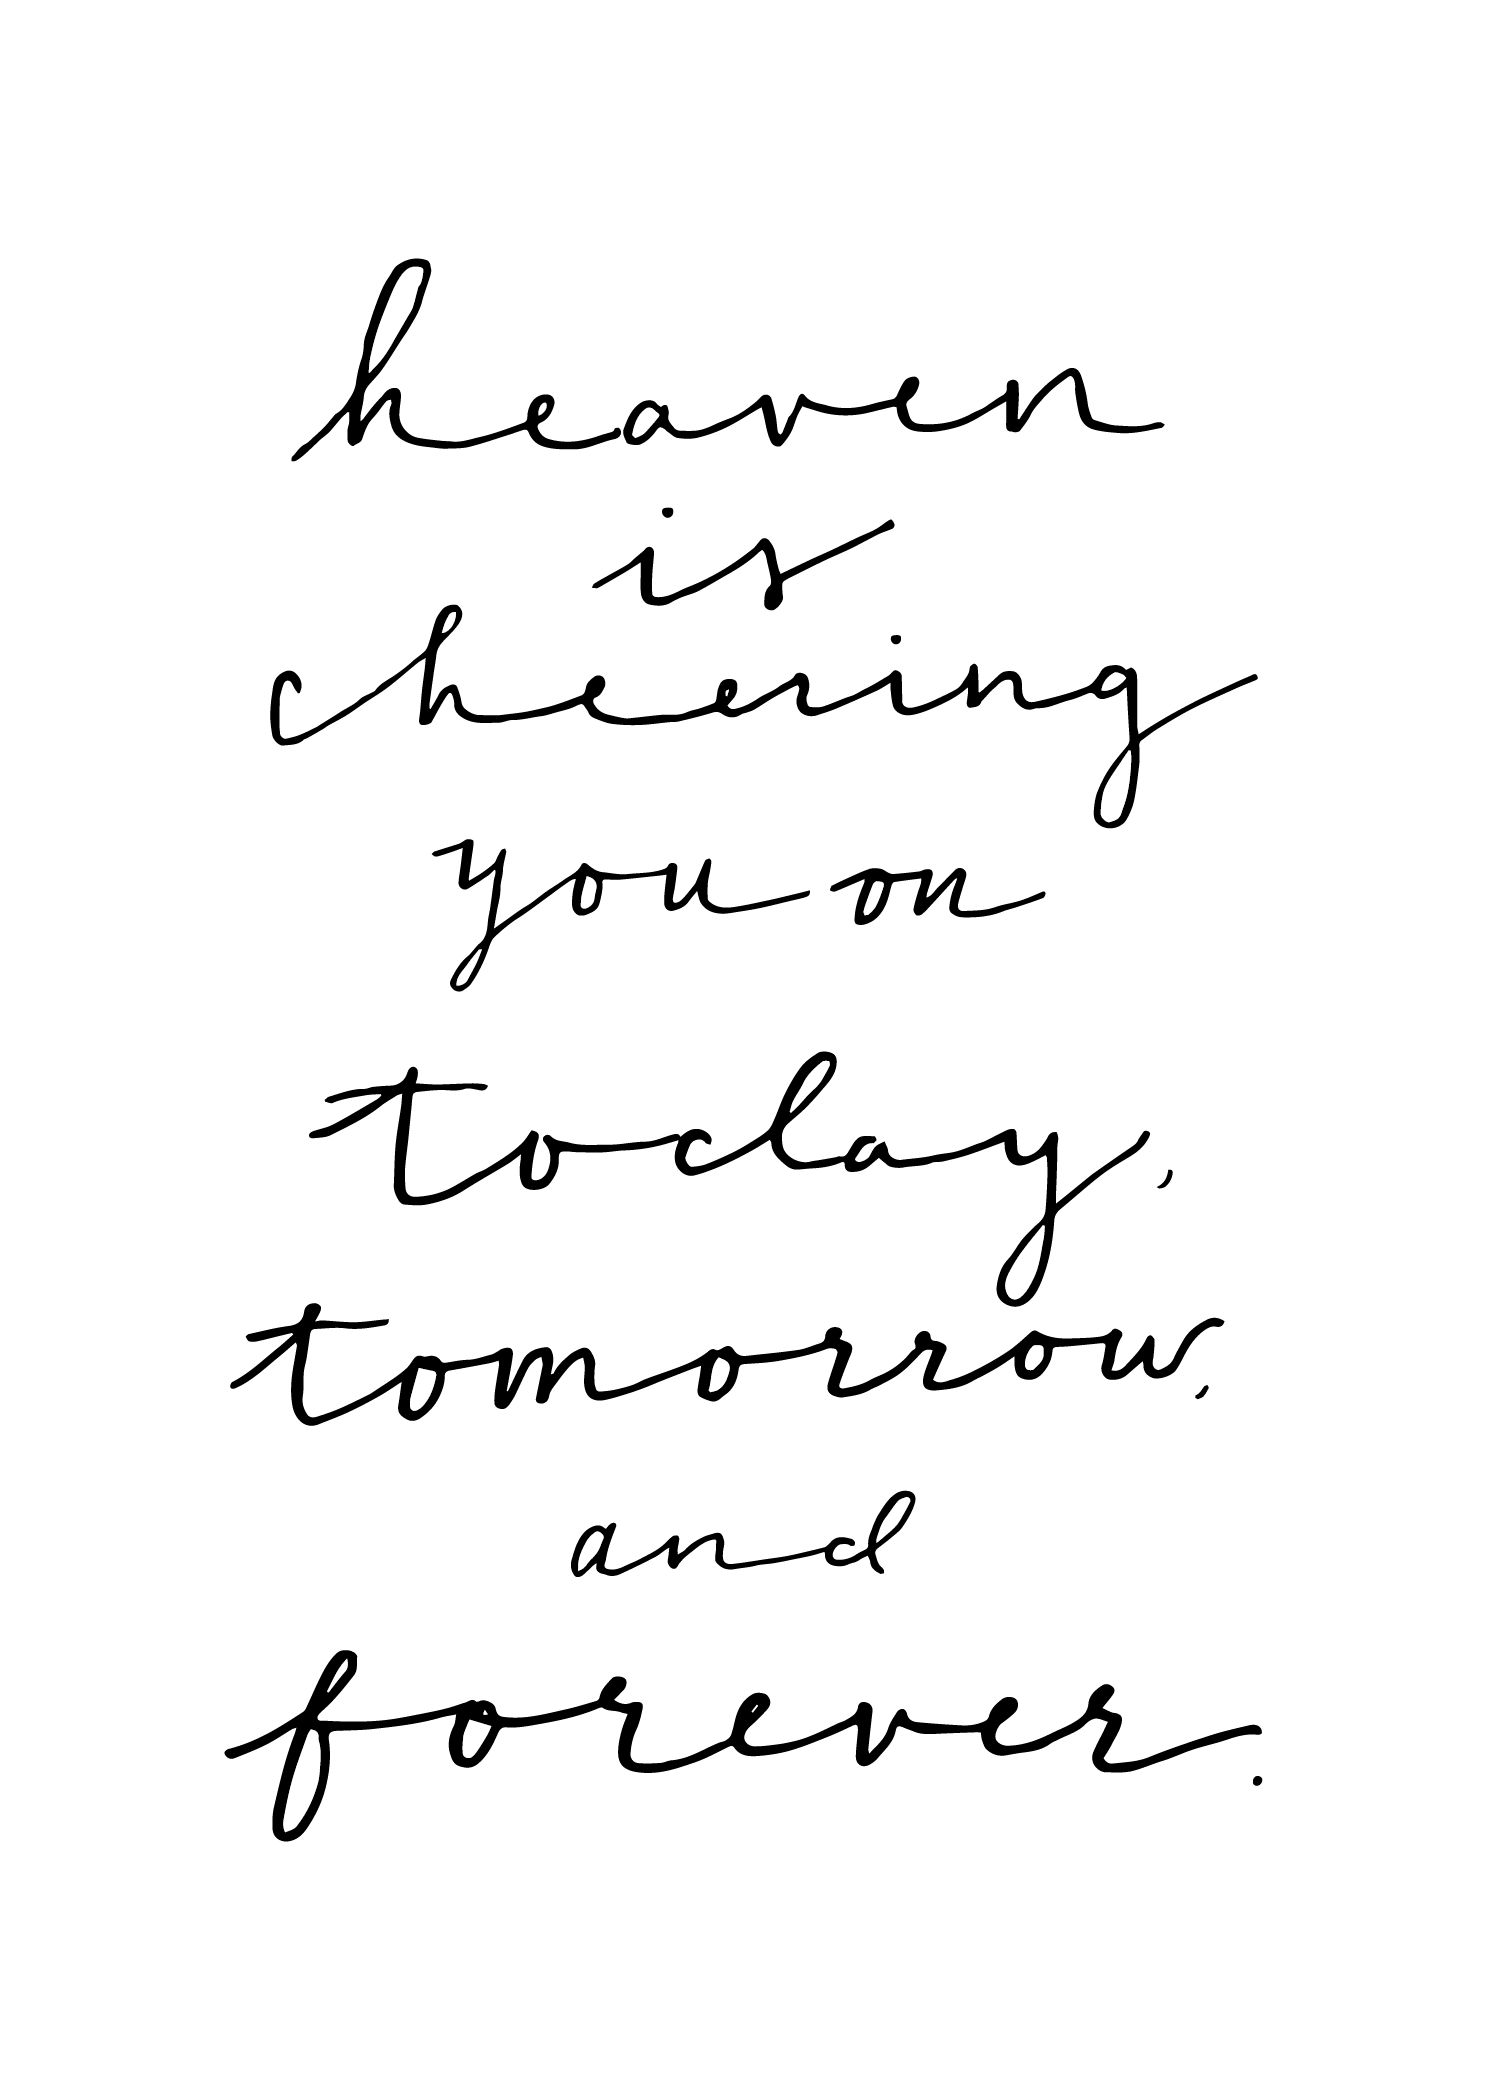 heaven
is
cheering
you on
today,
tomorrow,
and
forever.